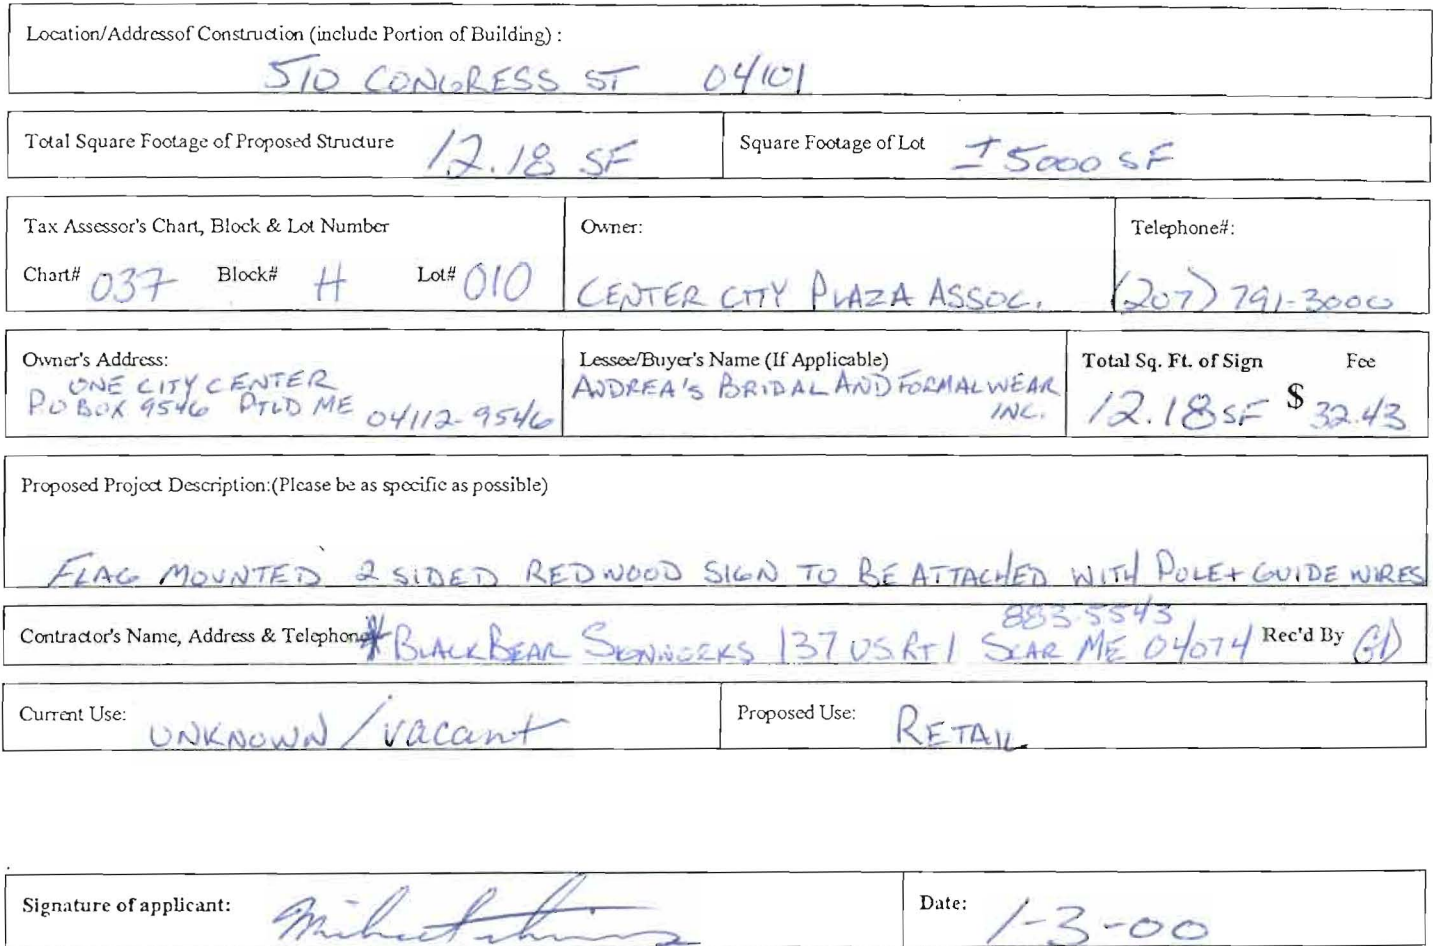 Location/Addressof Construction (include Portion of Building) :
510 CONGRESS ST 04101
Total Square Footage of Proposed Structure 12.18 SF Square Footage of Lot ±5000 SF
Tax Assessor's Chart, Block & Lot Number Owner: Telephone#:
Chart# 037 Block# H Lot# 010 CENTER CITY PLAZA ASSOC. (207) 791-3000
Owner's Address: Lessee/Buyer's Name (If Applicable) Total Sq. Ft. of Sign Fee
ONE CITY CENTER ANDREA'S BRIDAL AND FORMALWEAR
P.O BOX 9546 PTLD ME 04112-9546 INC. 12.18 SF $ 32.43
Proposed Project Description:(Please be as specific as possible)
FLAG MOUNTED 2 SIDED REDWOOD SIGN TO BE ATTACHED WITH POLE+ GUIDE WIRES
883-5543
Contractor's Name, Address & Telephone * BLACKBEAR SIGNWORKS 137 US RT 1 SCAR ME 04074 Rec'd By GD
Current Use: UNKNOWN / vacant Proposed Use: RETAIL
Signature of applicant: Date: 1-3-00